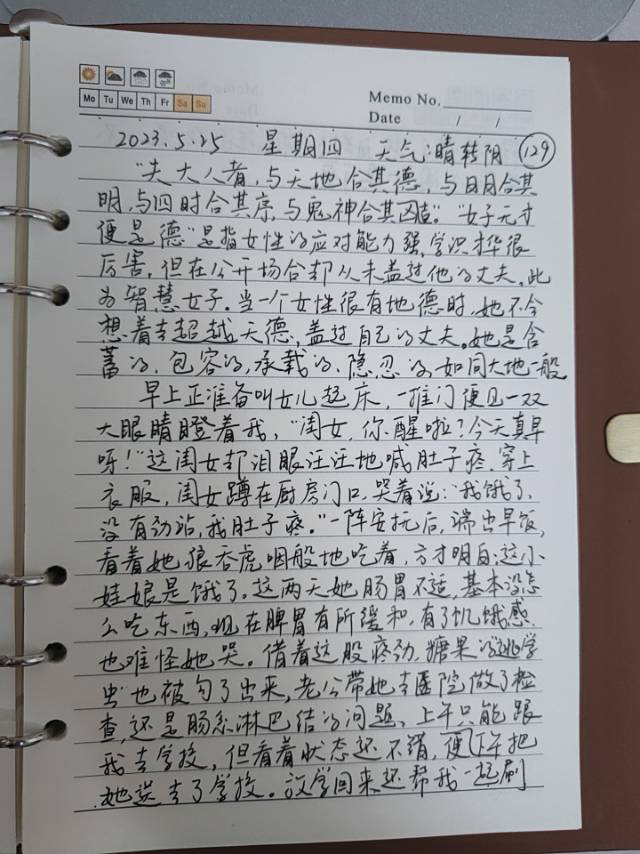 Mo Tu We Th Fr Sa Su
Memo No.
Date / /
2023.5.25 星期四 天气:晴转阴 129
"夫大人者,与天地合其德,与日月合其
明,与四时合其序,与鬼神合其凶"。"女子无才
便是德"是指女性的应对能力强,学识才华很
厉害,但在公开场合却从未盖过他的丈夫,此
为智慧女子。当一个女性很有地德时,她不会
想着去超越天德,盖过自己的丈夫。她是含
蓄的,包容的,承载的,隐忍的,如同大地一般
早上正准备叫女儿起床,一推门便见一双
大眼睛瞪着我,"闺女,你醒啦?今天真早
呀!"这闺女却泪眼汪汪地喊肚子疼,穿上
衣服,闺女蹲在厨房门口,哭着说:"我饿了,
没有劲站,我肚子疼。"一阵安抚后,端出早饭,
看着她狼吞虎咽般地吃着,方才明白:这小
娃娘是饿了。这两天她肠胃不适,基本没怎
么吃东西,现在脾胃有所缓和,有了饥饿感,
也难怪她哭。借着这股疼劲,糖果的"逃学
虫"也被勾了出来,老公带她去医院做了检
查,还是肠系淋巴结的问题、上午只能跟
我去学校,但看着状态还不错,便下午把
她送去了学校。放学回来还帮我一起刷